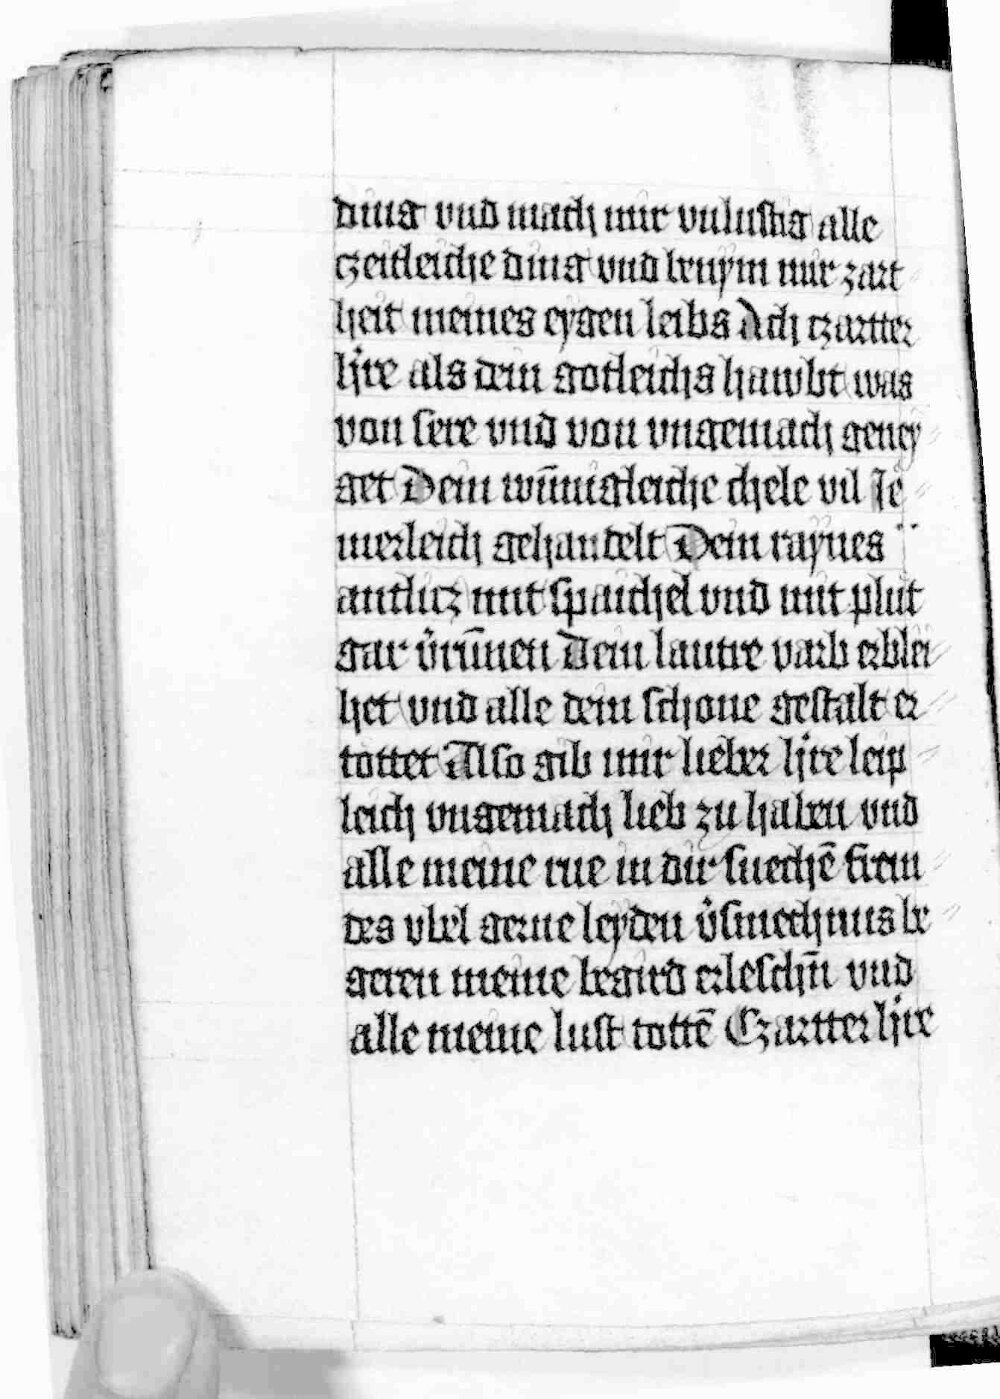 ding vnd mach mir vnlustig alle
czeitleiche ding vnd benẏm mir zart
heit meines eẏgen leibs Ach czartter
h͛re als dein gotleichs hawbt was
von sere vnd von vngemach geneẏ
get Dein wūnigleiche chele vil Je
merleich gehandelt Dein raẏnes
antlucz mit spaichel vnd mit plut
gar v̉rūnen Dein lautre varb erblei
het vnd alle dein schone gestalt er
tottet Also gib mir lieber h͛re leip
leich vngemach lieb zu haben vnd
alle meine rue in dir suechē frem
des vbel gerne leẏden v̉smechnus be
geren meine begird erleschn̄ vnd
alle meine lust tottē Czartter h͛re